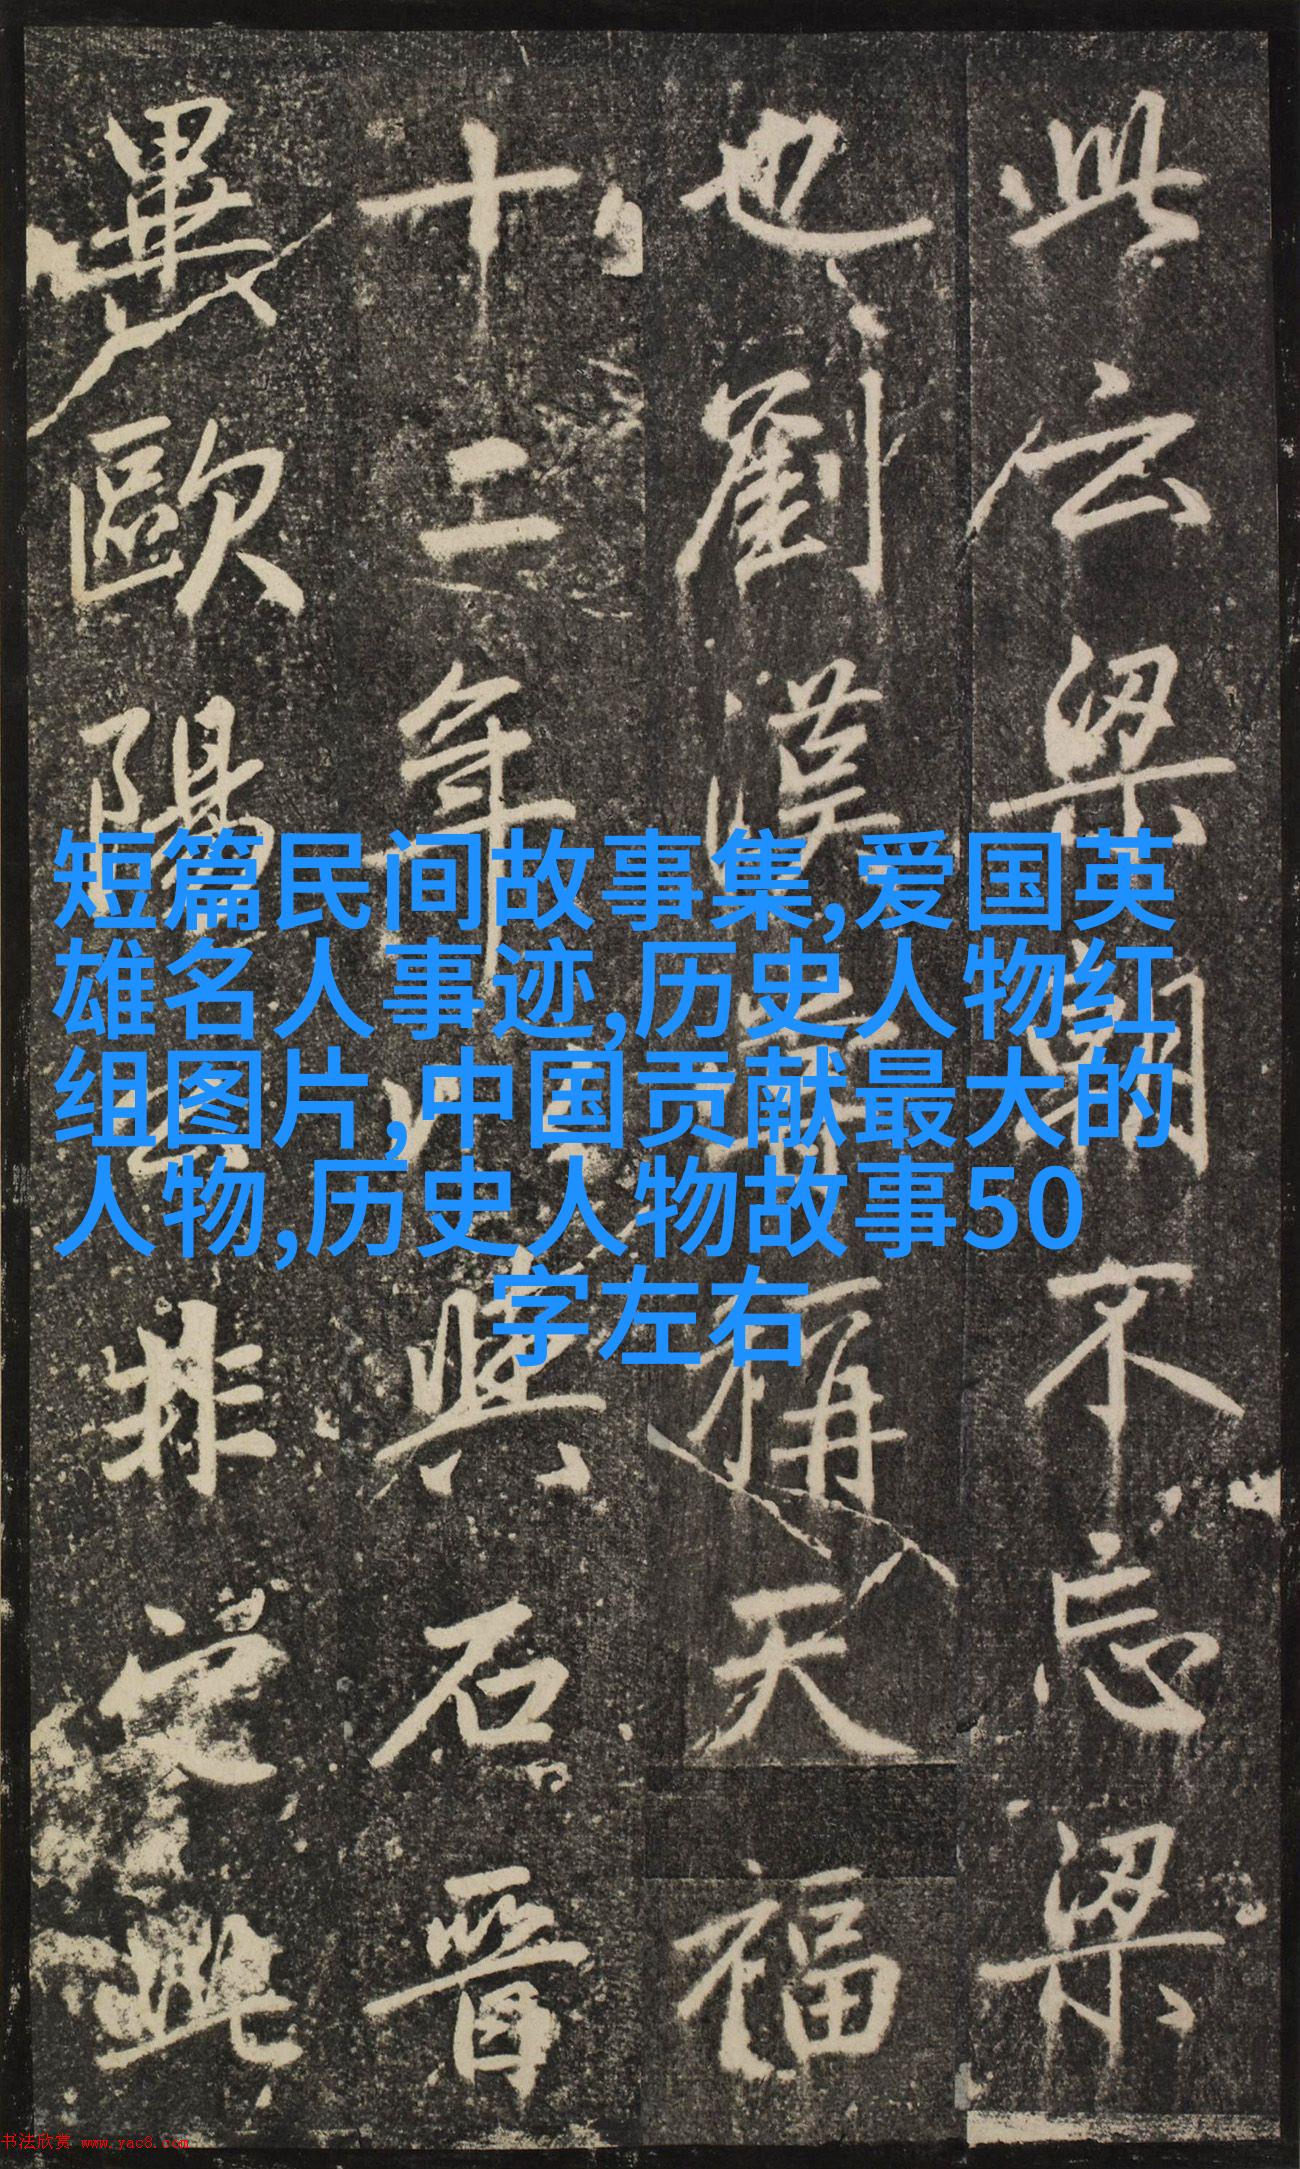 此云梁朝不忘梁
也劉漢 稱天福
十二年 與石晉
畢歐陽云非受此
短篇民间故事集,爱国英
雄名人事迹,历史人物红
组图片,中国贡献最大的
人物,历史人物故事50
字左右
书法欣赏 www.yac8.com